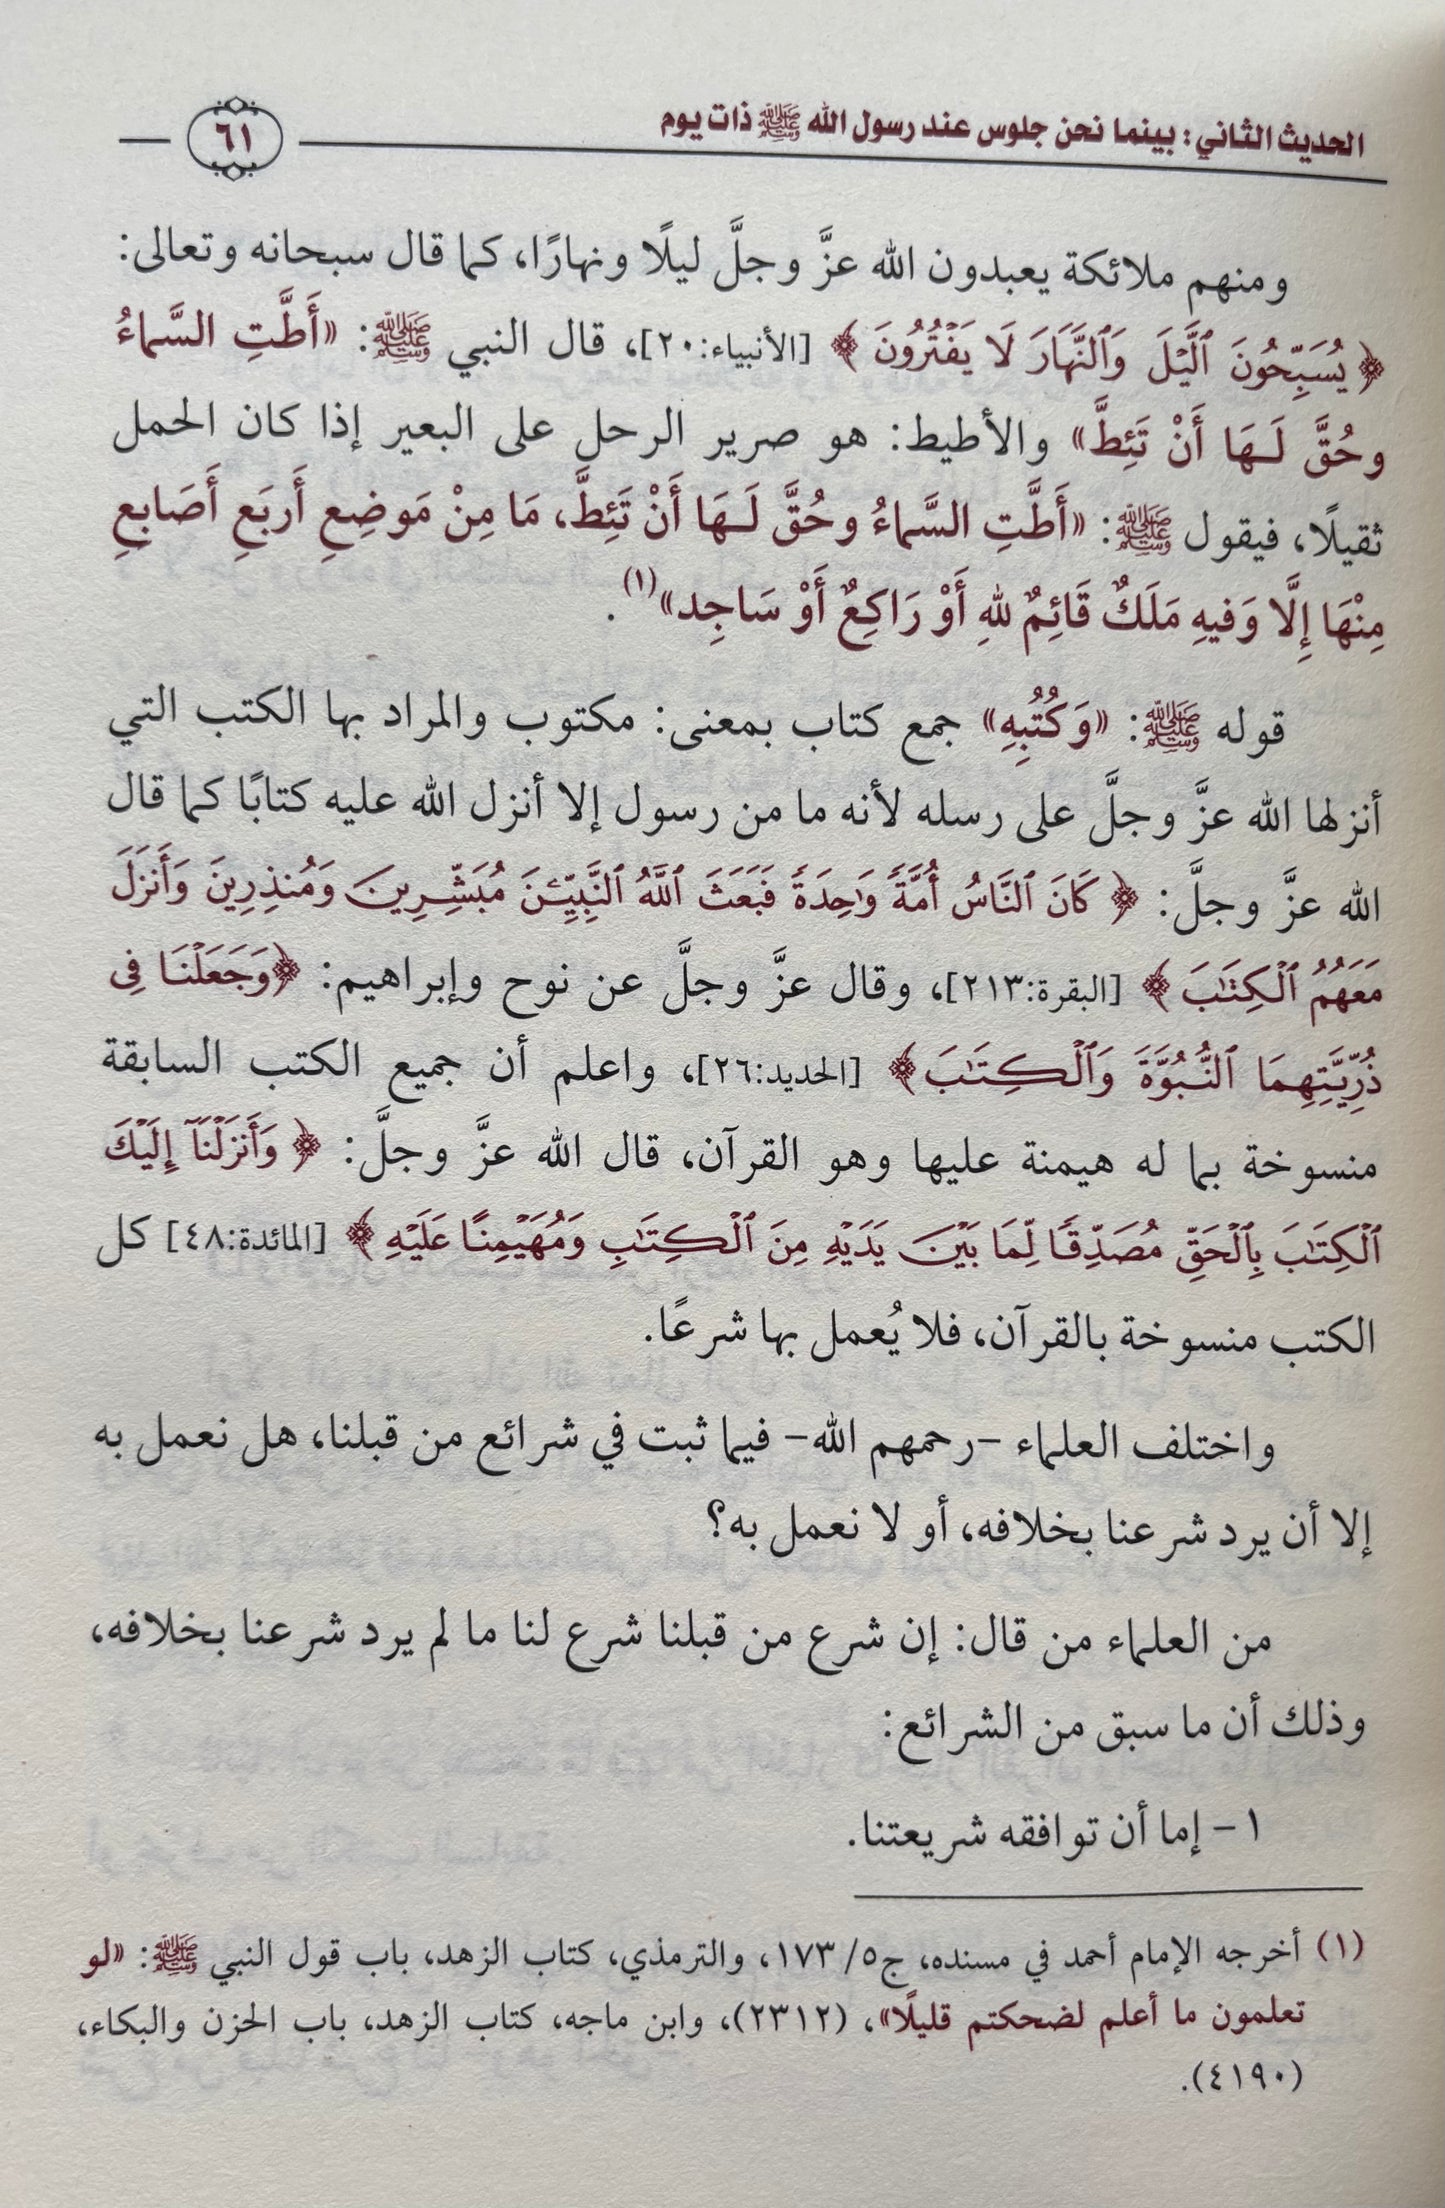 الحديث الثاني: بينما نحن جلوس عند رسول الله ﷺ ذات يوم
٦١
ومنهم ملائكة يعبدون الله عزَّ وجلَّ ليلًا ونهارًا، كما قال سبحانه وتعالى:
﴿ يُسَبِّحُونَ ٱلَّيْلَ وَٱلنَّهَارَ لَا يَفْتُرُونَ ﴾ [الأنبياء:٢٠]، قال النبي ﷺ: «أَطَّتِ السَّماءُ
وحُقَّ لَـهَا أَنْ تَئِطَّ» والأطيط: هو صرير الرحل على البعير إذا كان الحمل
ثقيلًا، فيقول ﷺ: «أَطَّتِ السَّماءُ وحُقَّ لَـهَا أَنْ تَئِطَّ، مَا مِنْ مَوضِعِ أَربَعِ أَصَابِعِ
مِنْهَا إِلَّا وَفيهِ مَلَكٌ قَائِمٌ للهِ أَوْ رَاكِعٌ أَوْ سَاجِد»(١).
قوله ﷺ: «وَكُتُبِهِ» جمع كتاب بمعنى: مكتوب والمراد بها الكتب التي
أنزلها الله عزَّ وجلَّ على رسله لأنه ما من رسول إلا أنزل الله عليه كتابًا كما قال
الله عزَّ وجلَّ: ﴿ كَانَ ٱلنَّاسُ أُمَّةً وَٰحِدَةً فَبَعَثَ ٱللَّهُ ٱلنَّبِيِّـۧنَ مُبَشِّرِينَ وَمُنذِرِينَ وَأَنزَلَ
مَعَهُمُ ٱلْكِتَٰبَ ﴾ [البقرة:٢١٣]، وقال عزَّ وجلَّ عن نوح وإبراهيم: ﴿وَجَعَلْنَا فِى
ذُرِّيَّتِهِمَا ٱلنُّبُوَّةَ وَٱلْكِتَٰبَ﴾ [الحديد:٢٦]، واعلم أن جميع الكتب السابقة
منسوخة بما له هيمنة عليها وهو القرآن، قال الله عزَّ وجلَّ: ﴿ وَأَنزَلْنَآ إِلَيْكَ
ٱلْكِتَٰبَ بِٱلْحَقِّ مُصَدِّقًا لِّمَا بَيْنَ يَدَيْهِ مِنَ ٱلْكِتَٰبِ وَمُهَيْمِنًا عَلَيْهِ ﴾ [المائدة:٤٨] كل
الكتب منسوخة بالقرآن، فلا يُعمل بها شرعًا.
واختلف العلماء -رحمهم الله- فيما ثبت في شرائع من قبلنا، هل نعمل به
إلا أن يرد شرعنا بخلافه، أو لا نعمل به؟
من العلماء من قال: إن شرع من قبلنا شرع لنا ما لم يرد شرعنا بخلافه،
وذلك أن ما سبق من الشرائع:
١- إما أن توافقه شريعتنا.
(١) أخرجه الإمام أحمد في مسنده، ج٥/ ١٧٣، والترمذي، كتاب الزهد، باب قول النبي ﷺ: «لو
تعلمون ما أعلم لضحكتم قليلًا»، (٢٣١٢)، وابن ماجه، كتاب الزهد، باب الحزن والبكاء،
(٤١٩٠).